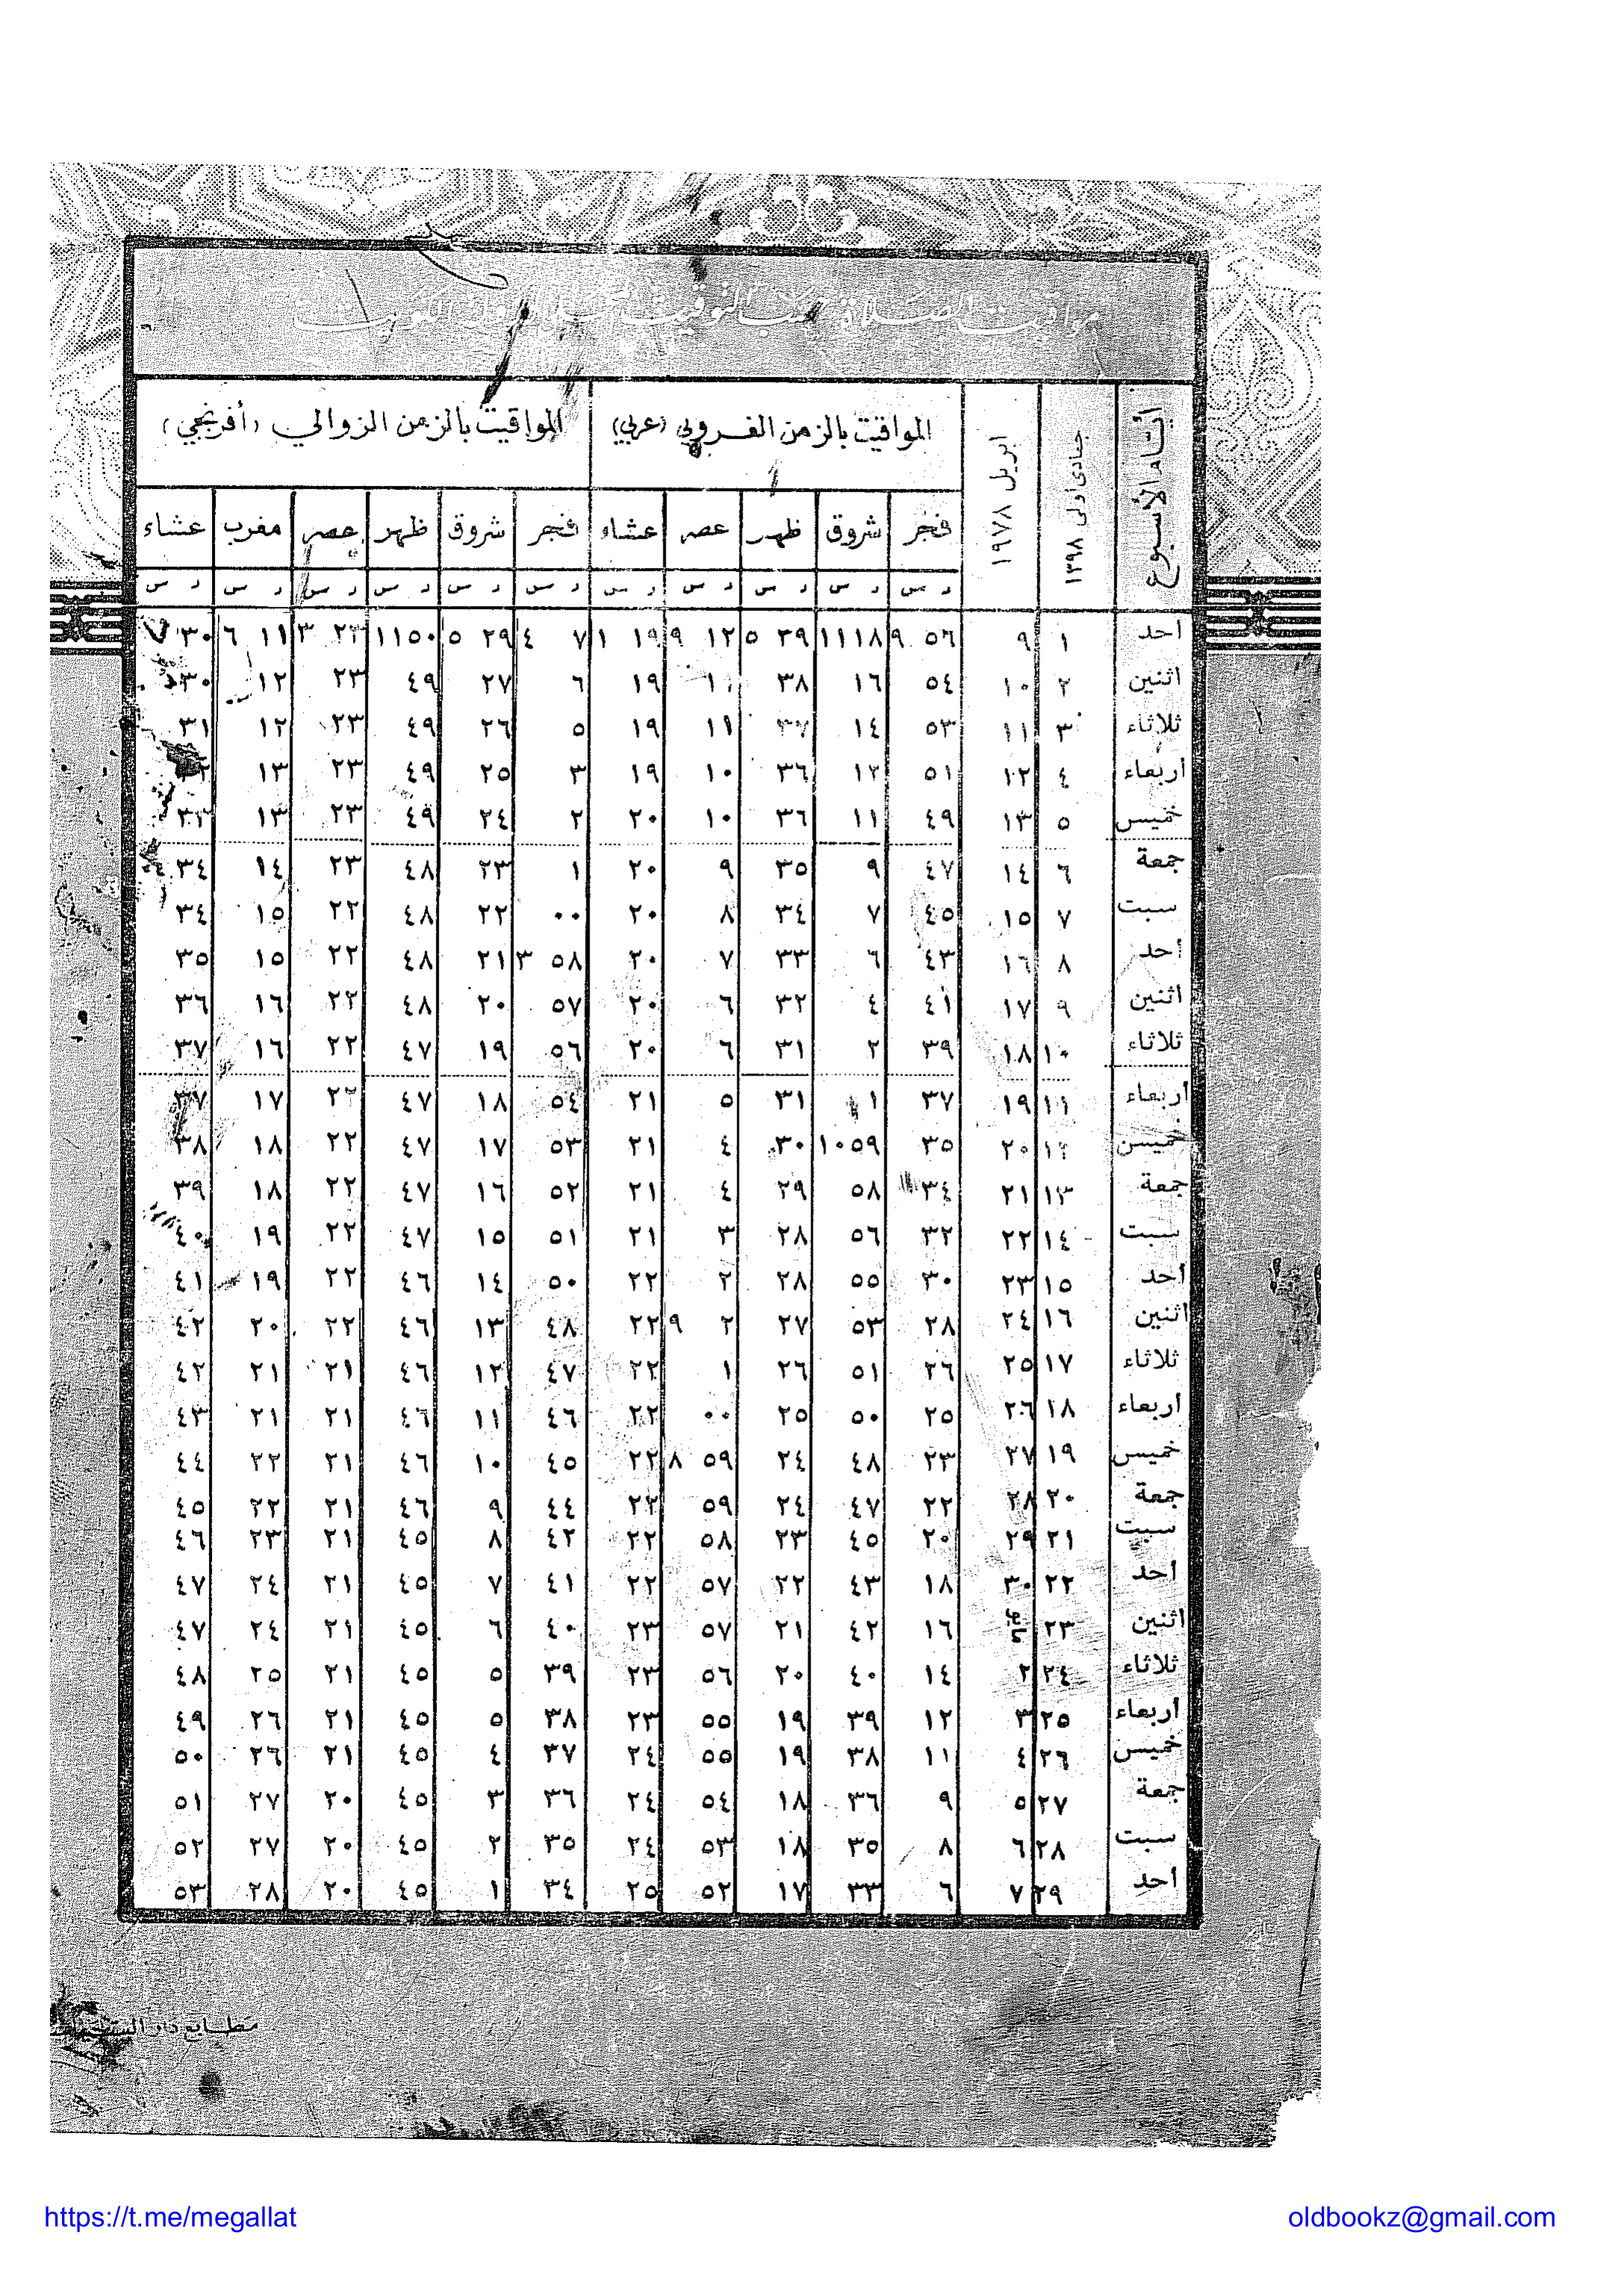 مواقيت الصلاة حسب التوقيت المحلي لدولة الكويت
أيام الأسبوع جمادى أولى ١٣٩٨ ابريل ١٩٧٨ المواقيت بالزمن الغروبي (عربي) المواقيت بالزمن الزوالي (أفرنجي)
فجر شروق ظهر عصر عشاء فجر شروق ظهر عصر مغرب عشاء
د س د س د س د س د س د س د س د س د س د س د س
أحد ١ ٩ ٥٦ ٩ ١١١٨ ٣٩ ٥ ١٢ ٩ ١٩ ١ ٧ ٤ ٢٩ ٥ ١١٥٠ ٢٣ ٣ ١١ ٦ ٣٠ ٧
اثنين ٢ ١٠ ٥٤ ١٦ ٣٨ ١٩ ٦ ٢٧ ٤٩ ٢٣ ١٢ ٣٠
ثلاثاء ٣ ١١ ٥٣ ١٤ ٣٧ ١١ ١٩ ٥ ٢٦ ٤٩ ٢٣ ١٢ ٣١
أربعاء ٤ ١٢ ٥١ ١٢ ٣٦ ١٠ ١٩ ٣ ٢٥ ٤٩ ٢٣ ١٣
خميس ٥ ١٣ ٤٩ ١١ ٣٦ ١٠ ٢٠ ٢ ٢٤ ٤٩ ٢٣ ١٣
جمعة ٦ ١٤ ٤٧ ٩ ٣٥ ٩ ٢٠ ١ ٢٣ ٤٨ ٢٣ ١٤ ٣٤
سبت ٧ ١٥ ٤٥ ٧ ٣٤ ٨ ٢٠ ٠٠ ٢٢ ٤٨ ٢٢ ١٥ ٣٤
أحد ٨ ١٦ ٤٣ ٦ ٣٣ ٧ ٢٠ ٥٨ ٣ ٢١ ٤٨ ٢٢ ١٥ ٣٥
اثنين ٩ ١٧ ٤١ ٤ ٣٢ ٦ ٢٠ ٥٧ ٢٠ ٤٨ ٢٢ ١٦ ٣٦
ثلاثاء ١٠ ١٨ ٣٩ ٢ ٣١ ٦ ٢٠ ٥٦ ١٩ ٤٧ ٢٢ ١٦ ٣٧
أربعاء ١١ ١٩ ٣٧ ١ ٣١ ٥ ٢١ ٥٤ ١٨ ٤٧ ٢٢ ١٧ ٣٧
خميس ١٢ ٢٠ ٣٥ ١٠٥٩ ٣٠ ٤ ٢١ ٥٣ ١٧ ٤٧ ٢٢ ١٨ ٣٨
جمعة ١٣ ٢١ ٣٤ ٥٨ ٢٩ ٤ ٢١ ٥٢ ١٦ ٤٧ ٢٢ ١٨ ٣٩
سبت ١٤ ٢٢ ٣٢ ٥٦ ٢٨ ٣ ٢١ ٥١ ١٥ ٤٧ ٢٢ ١٩ ٤٠
أحد ١٥ ٢٣ ٣٠ ٥٥ ٢٨ ٢ ٢٢ ٥٠ ١٤ ٤٦ ٢٢ ١٩ ٤١
اثنين ١٦ ٢٤ ٢٨ ٥٣ ٢٧ ٢ ٩ ٢٢ ٤٨ ١٣ ٤٦ ٢٢ ٢٠ ٤٢
ثلاثاء ١٧ ٢٥ ٢٦ ٥١ ٢٦ ١ ٢٢ ٤٧ ١٢ ٤٦ ٢١ ٢١ ٤٢
أربعاء ١٨ ٢٦ ٢٥ ٥٠ ٢٥ ٠٠ ٢٢ ٤٦ ١١ ٤٦ ٢١ ٢١ ٤٣
خميس ١٩ ٢٧ ٢٣ ٤٨ ٢٤ ٥٩ ٨ ٢٢ ٤٥ ١٠ ٤٦ ٢١ ٢٢ ٤٤
جمعة ٢٠ ٢٨ ٢٢ ٤٧ ٢٤ ٥٩ ٢٢ ٤٤ ٩ ٤٦ ٢١ ٢٢ ٤٥
سبت ٢١ ٢٩ ٢٠ ٤٥ ٢٣ ٥٨ ٢٢ ٤٢ ٨ ٤٥ ٢١ ٢٣ ٤٦
أحد ٢٢ ٣٠ ١٨ ٤٣ ٢٢ ٥٧ ٢٢ ٤١ ٧ ٤٥ ٢١ ٢٤ ٤٧
اثنين ٢٣ مايو ١٦ ٤٢ ٢١ ٥٧ ٢٣ ٤٠ ٦ ٤٥ ٢١ ٢٤ ٤٧
ثلاثاء ٢٤ ٢ ١٤ ٤٠ ٢٠ ٥٦ ٢٣ ٣٩ ٥ ٤٥ ٢١ ٢٥ ٤٨
أربعاء ٢٥ ٣ ١٢ ٣٩ ١٩ ٥٥ ٢٣ ٣٨ ٥ ٤٥ ٢١ ٢٦ ٤٩
خميس ٢٦ ٤ ١١ ٣٨ ١٩ ٥٥ ٢٤ ٣٧ ٤ ٤٥ ٢١ ٢٦ ٥٠
جمعة ٢٧ ٥ ٩ ٣٦ ١٨ ٥٤ ٢٤ ٣٦ ٣ ٤٥ ٢٠ ٢٧ ٥١
سبت ٢٨ ٦ ٨ ٣٥ ١٨ ٥٣ ٢٤ ٣٥ ٢ ٤٥ ٢٠ ٢٧ ٥٢
أحد ٢٩ ٧ ٦ ٣٣ ١٧ ٥٢ ٢٥ ٣٤ ١ ٤٥ ٢٠ ٢٨ ٥٣
مطابع دار
https://t.me/megallat
oldbookz@gmail.com